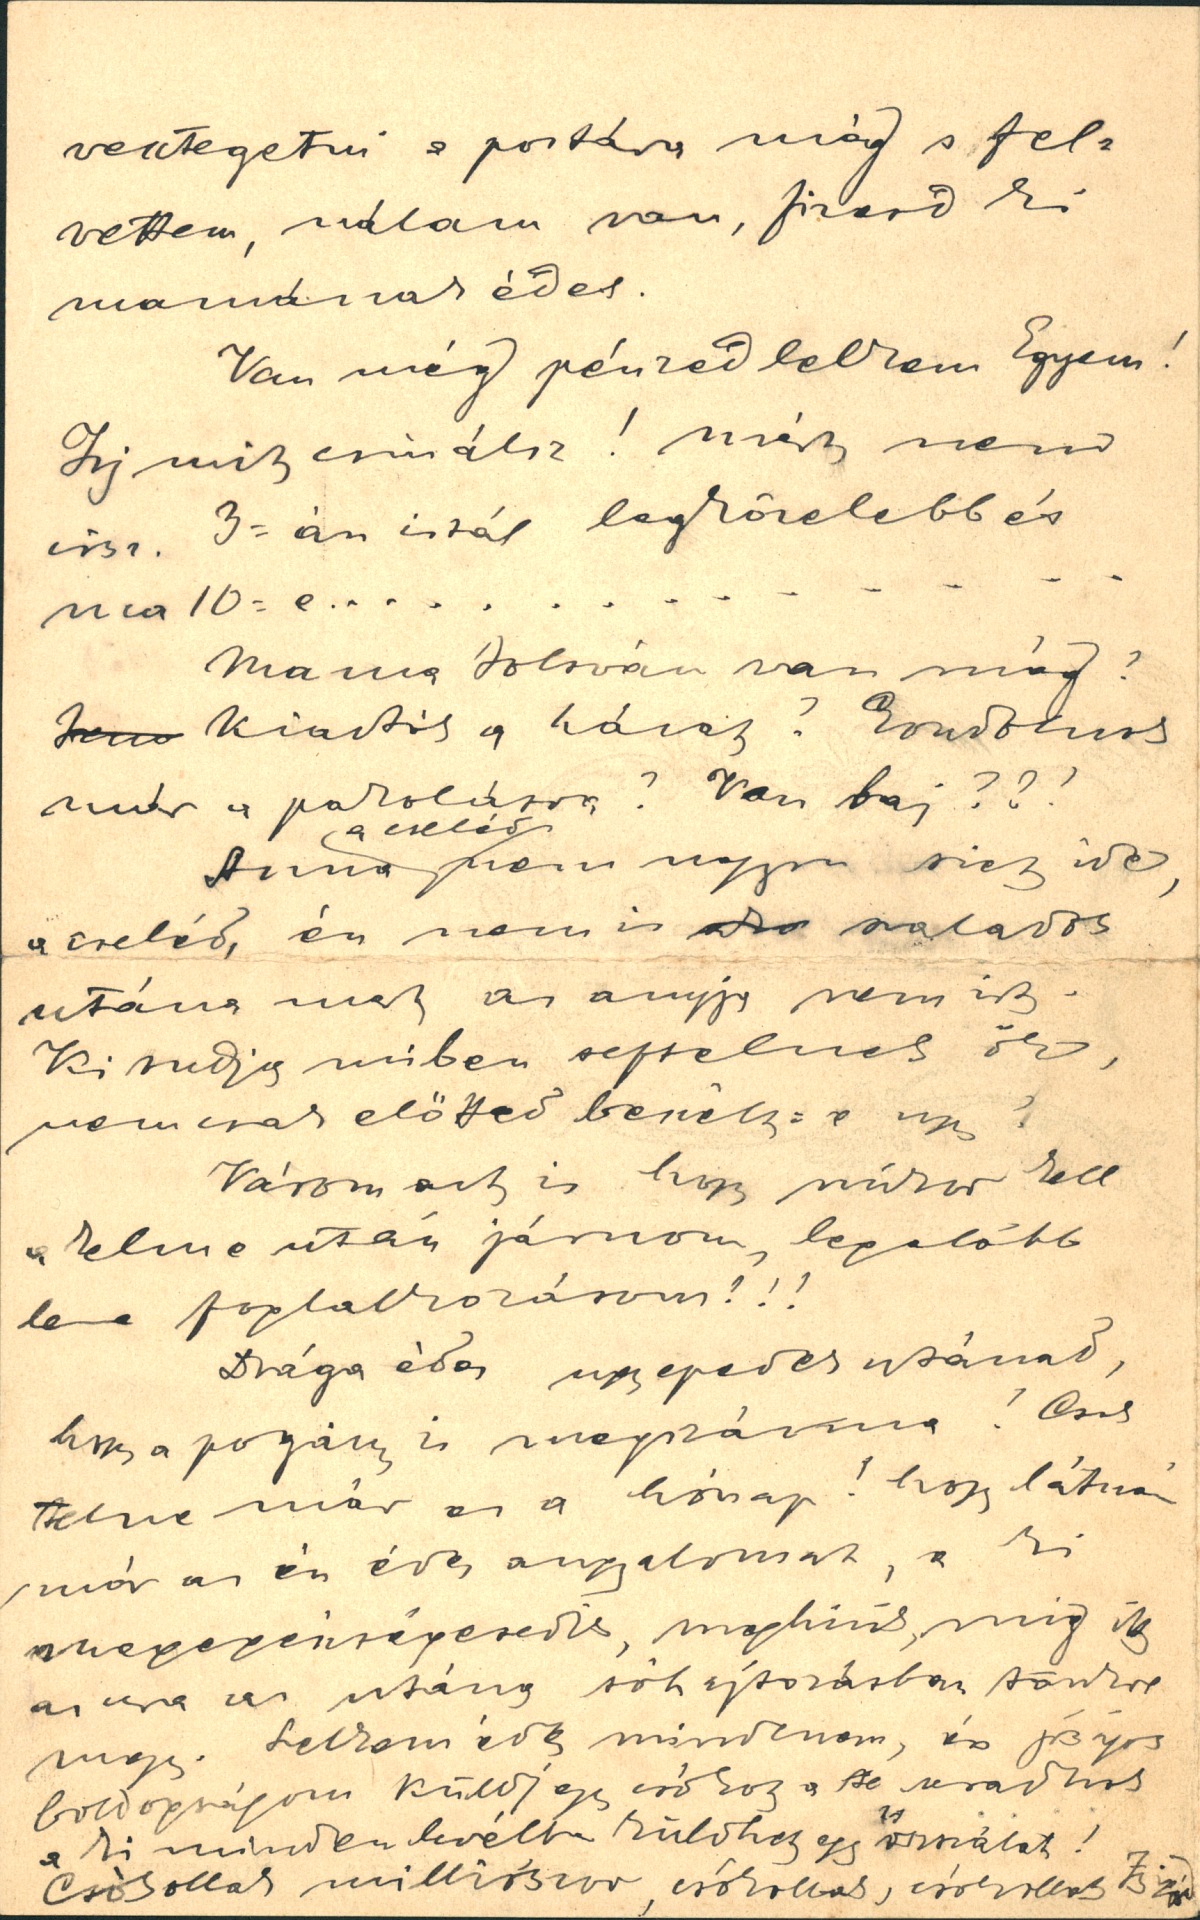 vesztegetni a postára még s fel=
vettem, nálam van, fizesd ki
mamának édes.
Van még pénzed lelkem Egyem!
Írj mit csinálsz! mért nem
írsz. 3=án irtál legközelebb és
ma 10=e..............
Mama Zolsván van még?
Kiadtis a házat? Gondolnos
már a pakolásra? Van baj???
a cseléd
Anna nem nagyon siet ide,
a cseléd, én nem is szaladok
utána mert az anyja nem ir.
Ki tudja miben sepselnek ők,
nemcsak előtted beszélt=e úgy?
Várom azt is hogy mikor kell
a kelme után járnom, legalább
lenne foglalkozásom!!!
Drága édes úgy epedek utánad,
hogy a pogány is megszánna! Csak
telne már ez a hónap! hogy látnám
már az én édes angyalomat, a ki
megegészségesedik, meghízik, míg itt
az ura az utána sóhajtozásban
megy. Lelkem édes mindenem, és
boldogságom Küldj egy csókot a te uradnak
a ki minden levélbe küldhet egy is!
Csókollak milliószor, csókollak, csókollak